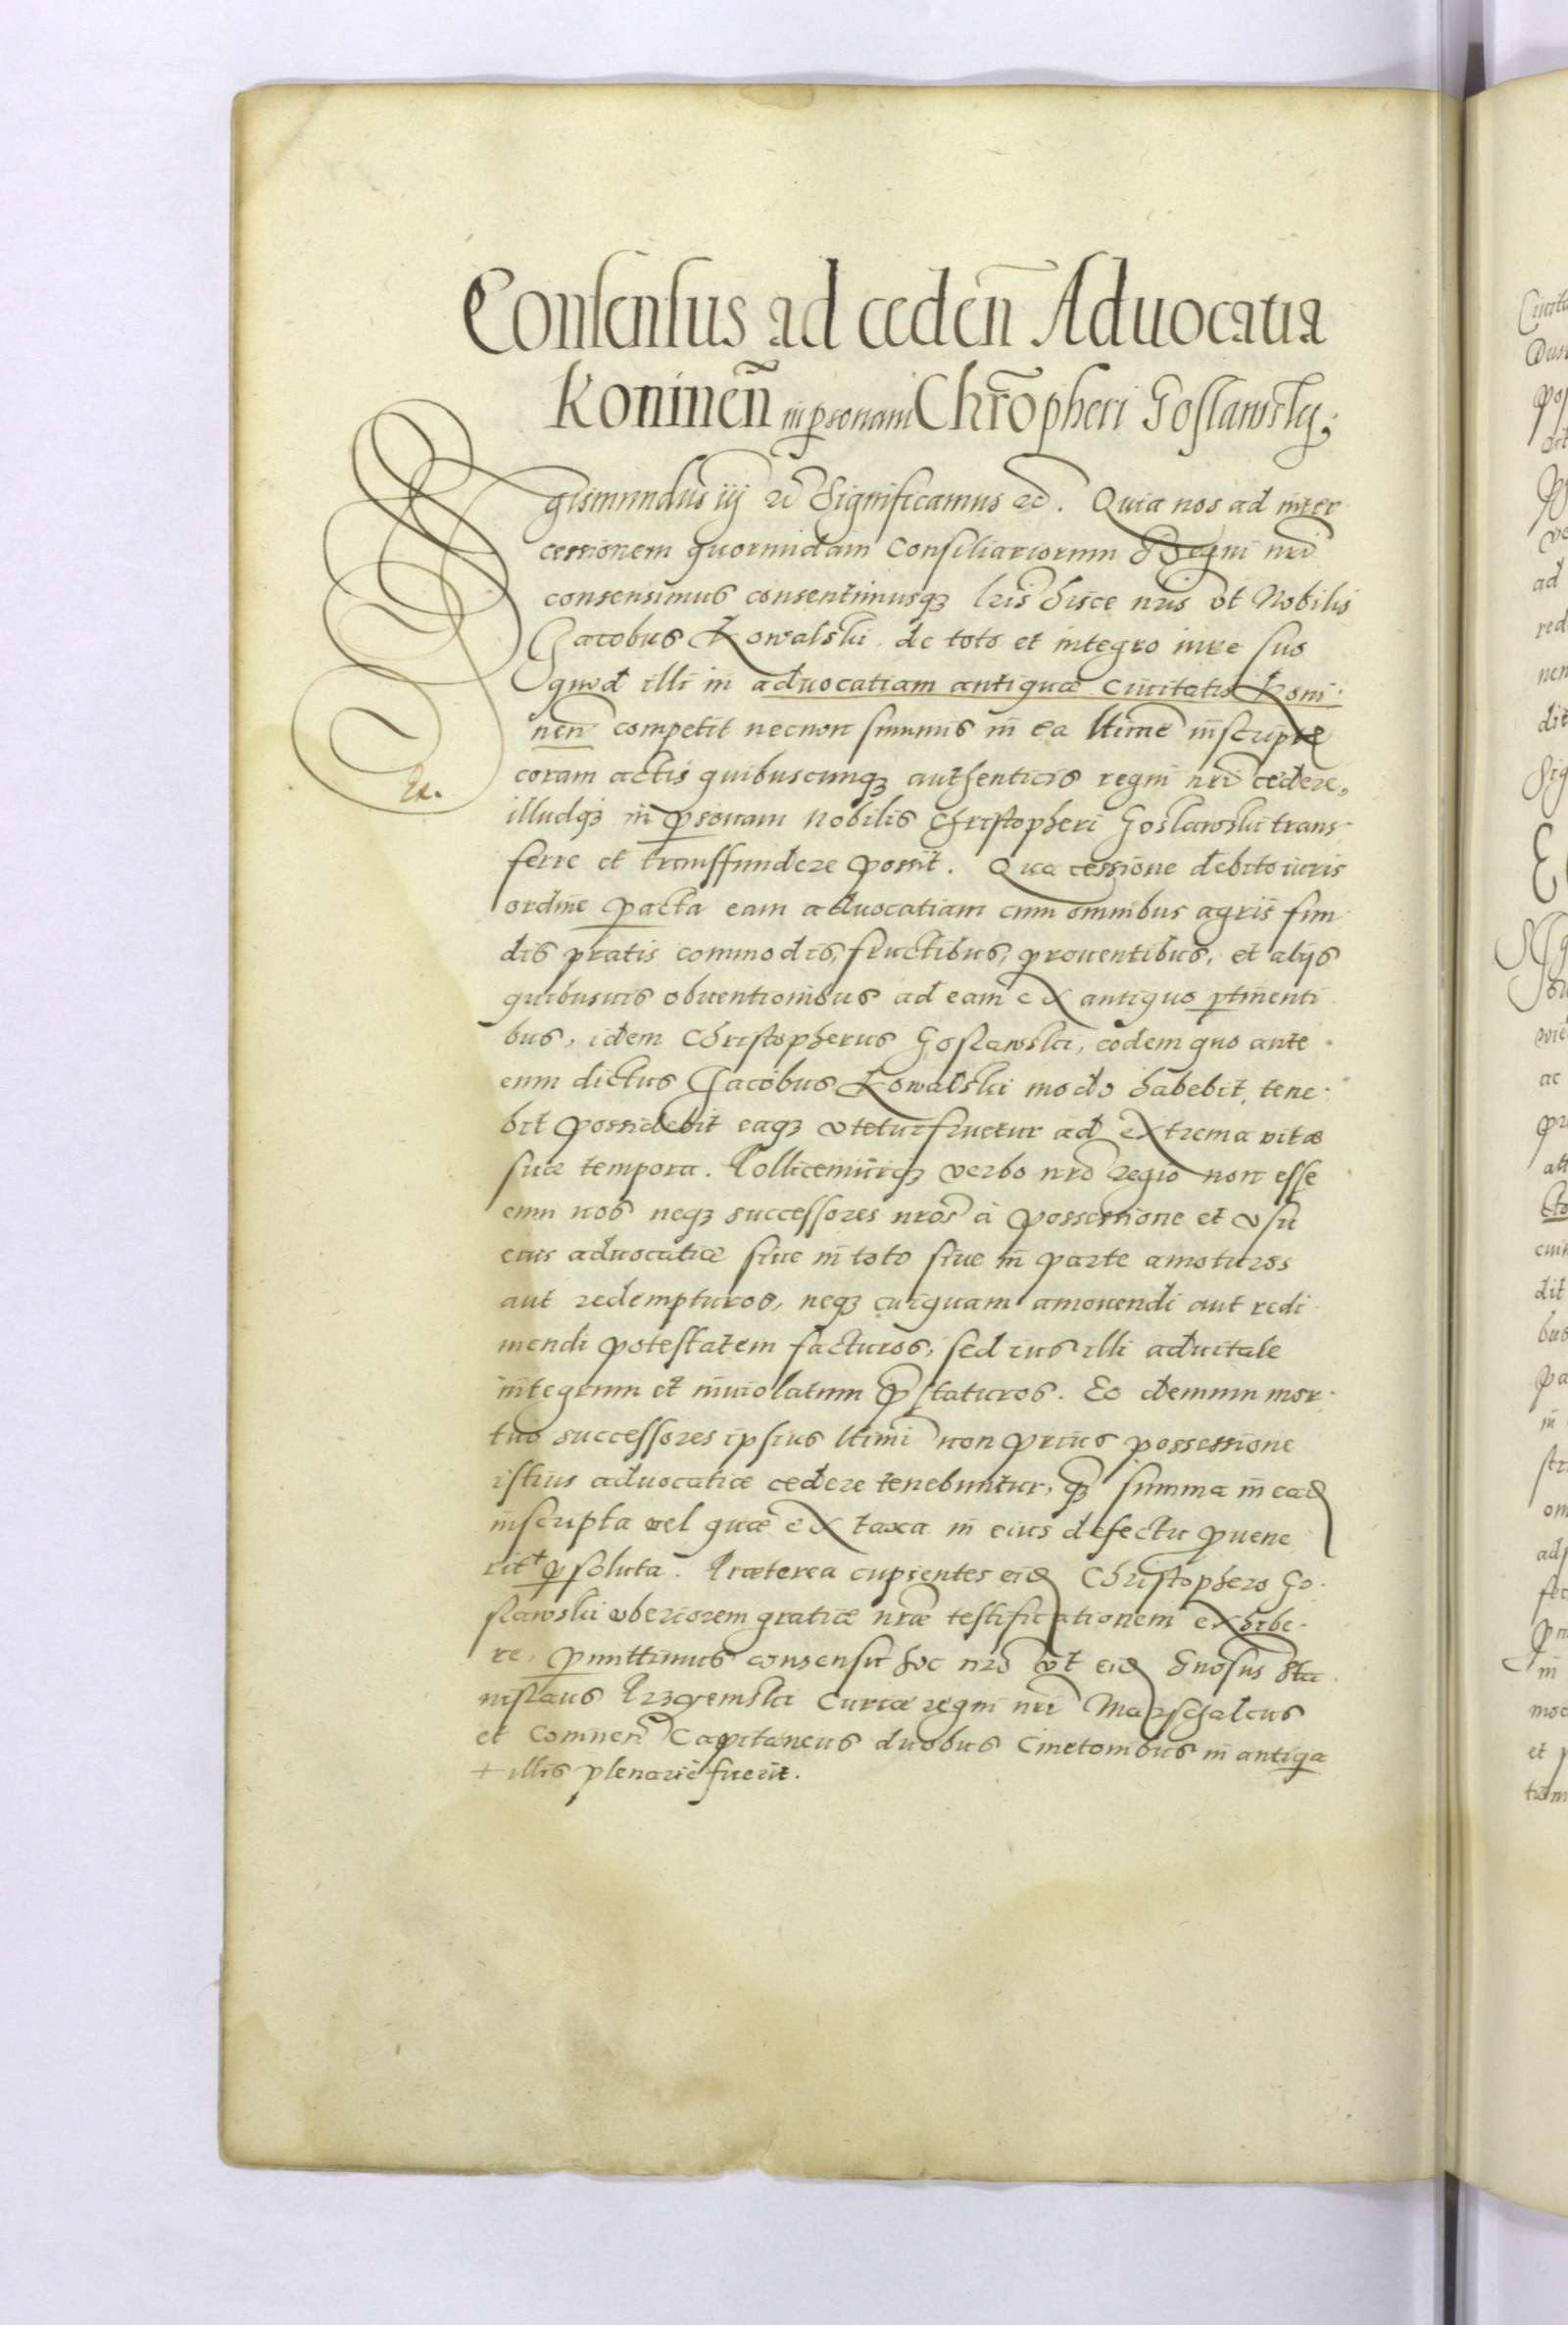 Consensus ad ceden̄ Aduocatia
Koninen̄ in psonam Chr̄opheri Goslawsky;
Sigismundus iij ec Significamus ec. Quia nos ad inter
cessionem quorundam Consiliariorum Regni nr̄i
consensimus consentimusqȝ lr̄is hisce nr̄is vt Nobilis
Jacobus Kowalski de toto et integro iure suo
quod illi in aduocatiam antiquæ Ciuitatis Koni
nen̄ competit necnon summis in ea ltime inscriptis
coram actis quibuscunqȝ authenticis regni nr̄i cedere,
illudqȝ in psonam Nobilis Christopheri Goslawski trans
ferre et transfundere possit. Qua cessione debito iuris
ordine pacta eam aduocatiam cum omnibus agris fun
dis pratis commodis, fructibus, prouentibus, et alijs
quibusuis obuentionibus ad eam ex antiquo ptinenti
bus, idem Christopherus Goslawski, eodem quo ante
eum dictus Jacobus Kowalski modo habebit, tene
bit possidebit eaqȝ vtetur fruetur ad extrema vitæ
suæ tempora. Pollicemurqȝ verbo nr̄o regio non esse
eum nos neqȝ successores nr̄os à possessione et vsu
eius aduocatiæ siue in toto siue in parte amoturos
aut redempturos, neqȝ cuiquam amouendi aut redi
mendi potestatem facturos, sed ius illi aduitale
integrum et inuiolatum pstaturos. Eo demum mor
tuo successores ipsius ltimi non prius possessione
istius aduocatiæ cedere tenebuntur, qȝ summa in ead
inscripta vel quæ ex taxa in eius defectu puene
rit + psoluta. Præterea cupientes eid Christophero Go
slawski vberiorem gratiæ nr̄æ testificationem exhibe
re, pmittimus consensu hoc nr̄o vt eid Gnosus Sta
nislaus Przyemski Curiæ regni nr̄i Marschalcus
et Connen̄ Capitaneus duobus Cmetonibus in antiqa
+ illis plenarie fuerit.
Ex.